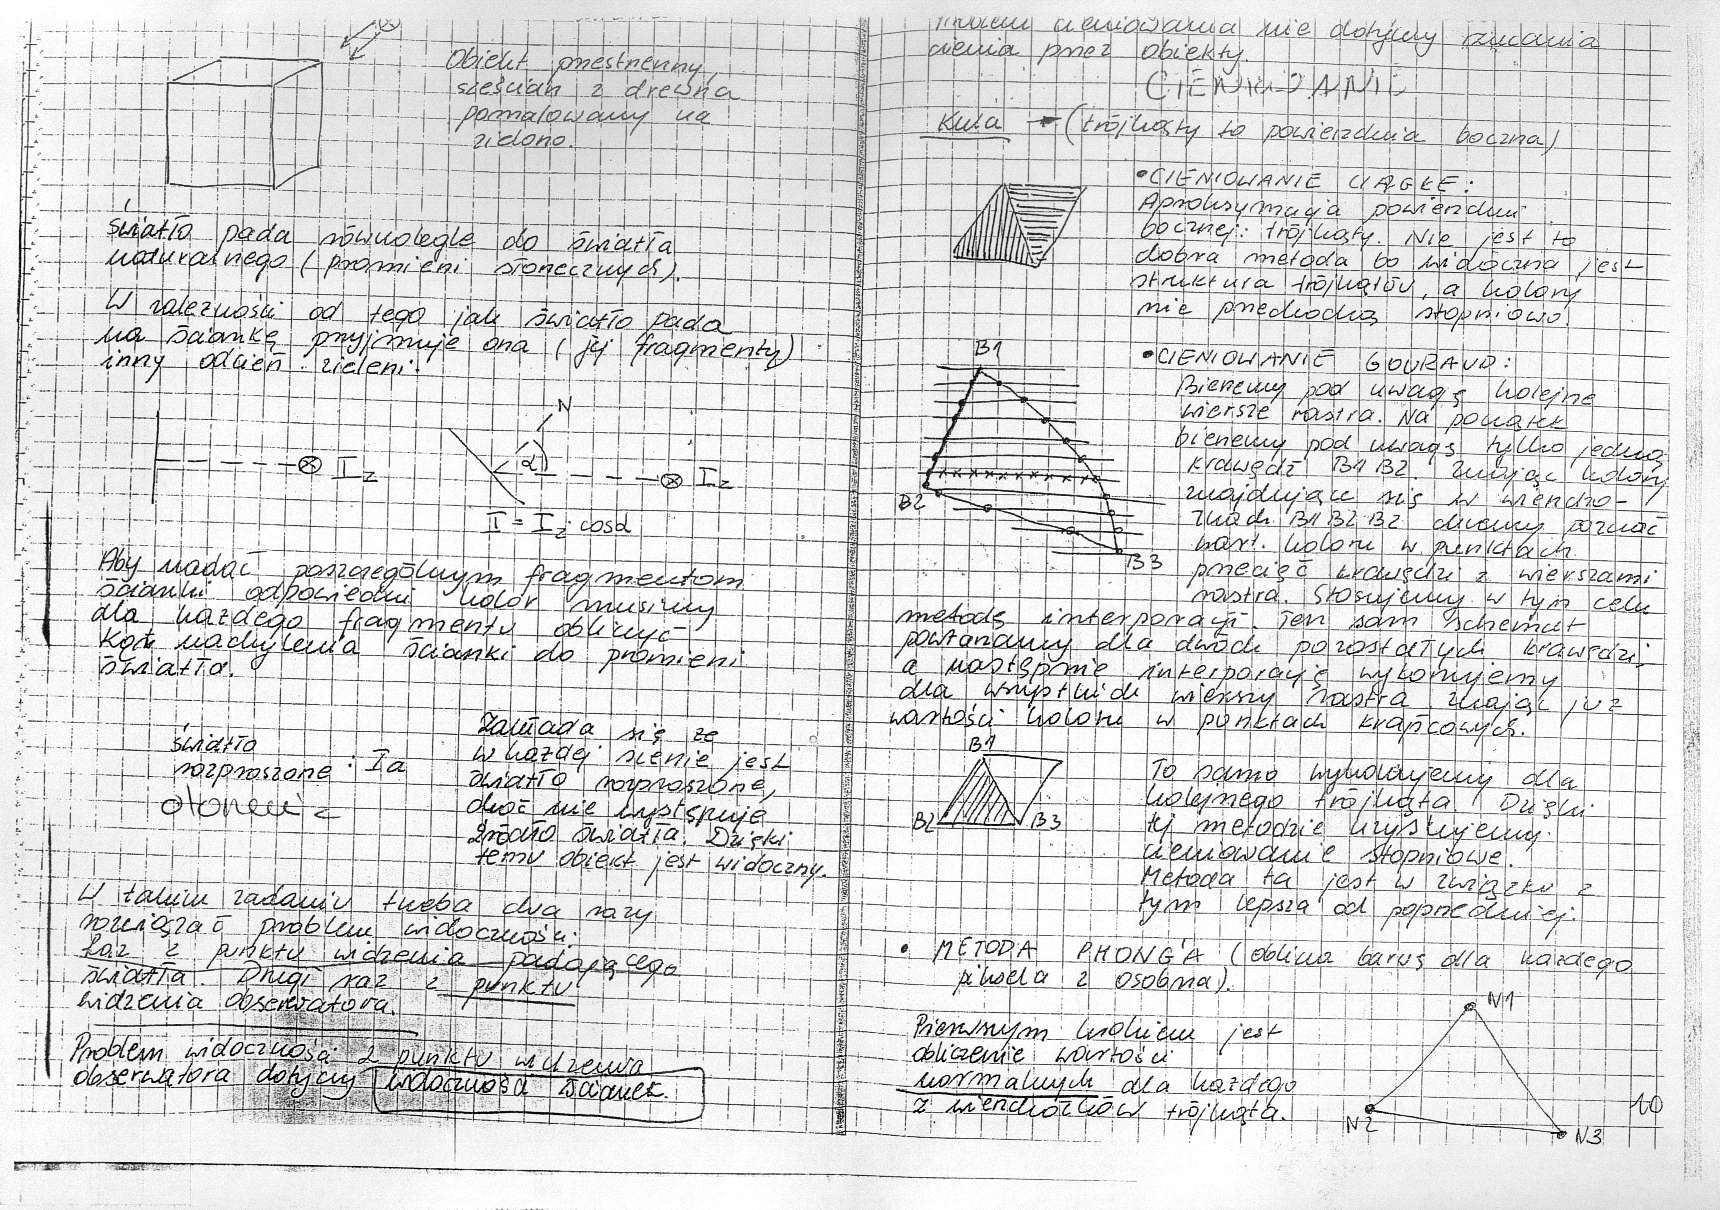 Obiekt przestrzenny,
sześcian z drewna
pomalowany na
zielono.
światło pada równolegle do światła
naturalnego (promieni słonecznych).
W zależności od tego jak światło pada
na ściankę przyjmuje ona (jej fragmenty)
inny odcień zieleni.
N
α
Iz
Iz
I = Iz · cosα
Aby nadać poszczególnym fragmentom
ścianki odpowiedni kolor musimy
dla każdego fragmentu obliczyć
kąt nachylenia ścianki do promieni
światła.
światło
rozproszone : Ia
Zakłada się że
w każdej scenie jest
światło rozproszone,
choć nie występuje
źródło światła. Dzięki
temu obiekt jest widoczny.
W takim zadaniu trzeba dwa razy
rozwiązać problem widoczności:
Raz z punktu widzenia padającego
światła. Drugi raz z punktu
widzenia obserwatora.
Problem widoczności z punktu widzenia
obserwatora dotyczy widoczność ścianek.
Problem cieniowania nie dotyczy rzucania
cienia przez obiekty.
CIENIOWANIE
Kula → (trójkąty to powierzchnia boczna)
• CIENIOWANIE CIĄGŁE:
Aproksymacja powierzchni
bocznej: trójkąty. Nie jest to
dobra metoda bo widoczna jest
struktura trójkątów, a kolory
nie przechodzą stopniowo.
B1
B2
B3
• CIENIOWANIE GOURAUD:
Bierzemy pod uwagę kolejne
wiersze rastra. Na początek
bierzemy pod uwagę tylko jedną
krawędź B1 B2. Znając kolory
znajdujące się w wierzcho-
łkach B1 B2 B2 chcemy poznać
wart. koloru w punktach
przecięć krawędzi z wierszami
rastra. Stosujemy w tym celu
metodę interporacji. Ten sam schemat
powtarzamy dla dwóch pozostałych krawędzi,
a następnie interporację wykonujemy
dla wszystkich wierszy rastra znając już
wartości koloru w punktach krańcowych.
B1
B2
B3
To samo wykonujemy dla
kolejnego trójkąta. Dzięki
tej metodzie uzyskujemy
cieniowanie stopniowe.
Metoda ta jest w związku z
tym lepsza od poprzedniej.
• METODA PHONG'A (oblicza barwę dla każdego
piksela z osobna).
Pierwszym krokiem jest
obliczenie wartości
normalnych dla każdego
z wierzchołków trójkąta.
N1
N2
N3
10